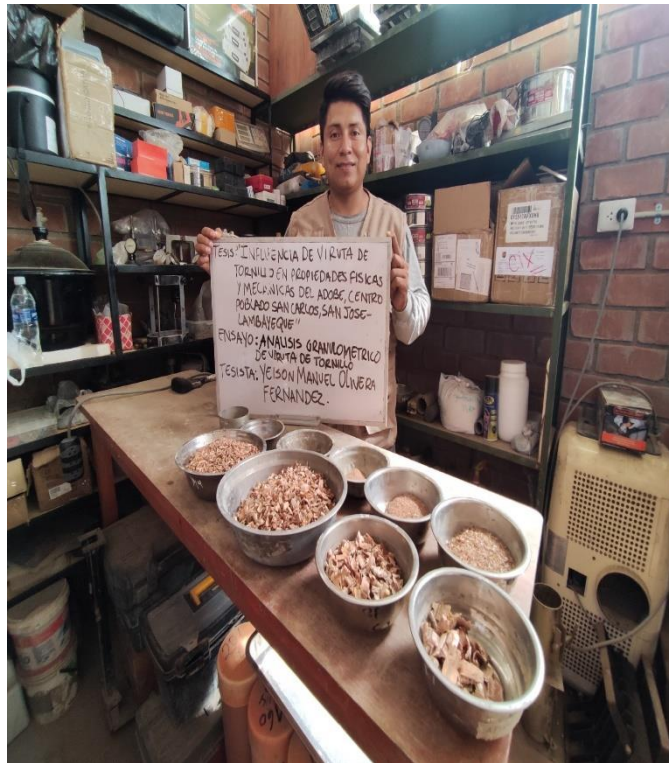 TESIS: "INFLUENCIA DE VIRUTA DE
TORNILLO EN PROPIEDADES FISICAS
Y MECANICAS DEL ADOBE, CENTRO
POBLADO SAN CARLOS, SAN JOSE-
LAMBAYEQUE"
ENSAYO: ANALISIS GRANULOMETRICO
DE VIRUTA DE TORNILLO
TESISTA: YEISON MANUEL OLIVERA
FERNANDEZ.
CIX